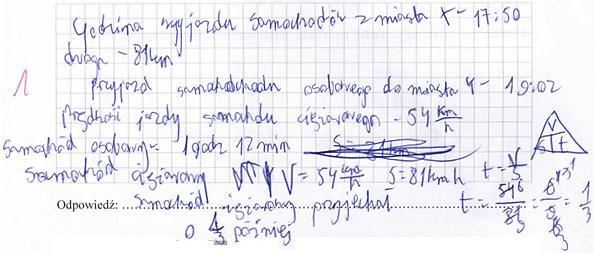 Godzina wyjazdu samochodów z miasta X - 17:50
droga - 81km
1
przyjazd samochodu osobowego do miasta Y - 19:02
Prędkość jazdy samochodu ciężarowego - 54 km/h
samochód osobowy - 1 godz 12 min
samochód ciężarowy V = 54 km/h S = 81km t = V/S
Odpowiedź: samochód ciężarowy przyjechał t = 54/81 = 6/9 = 1/3
o 4/3 później